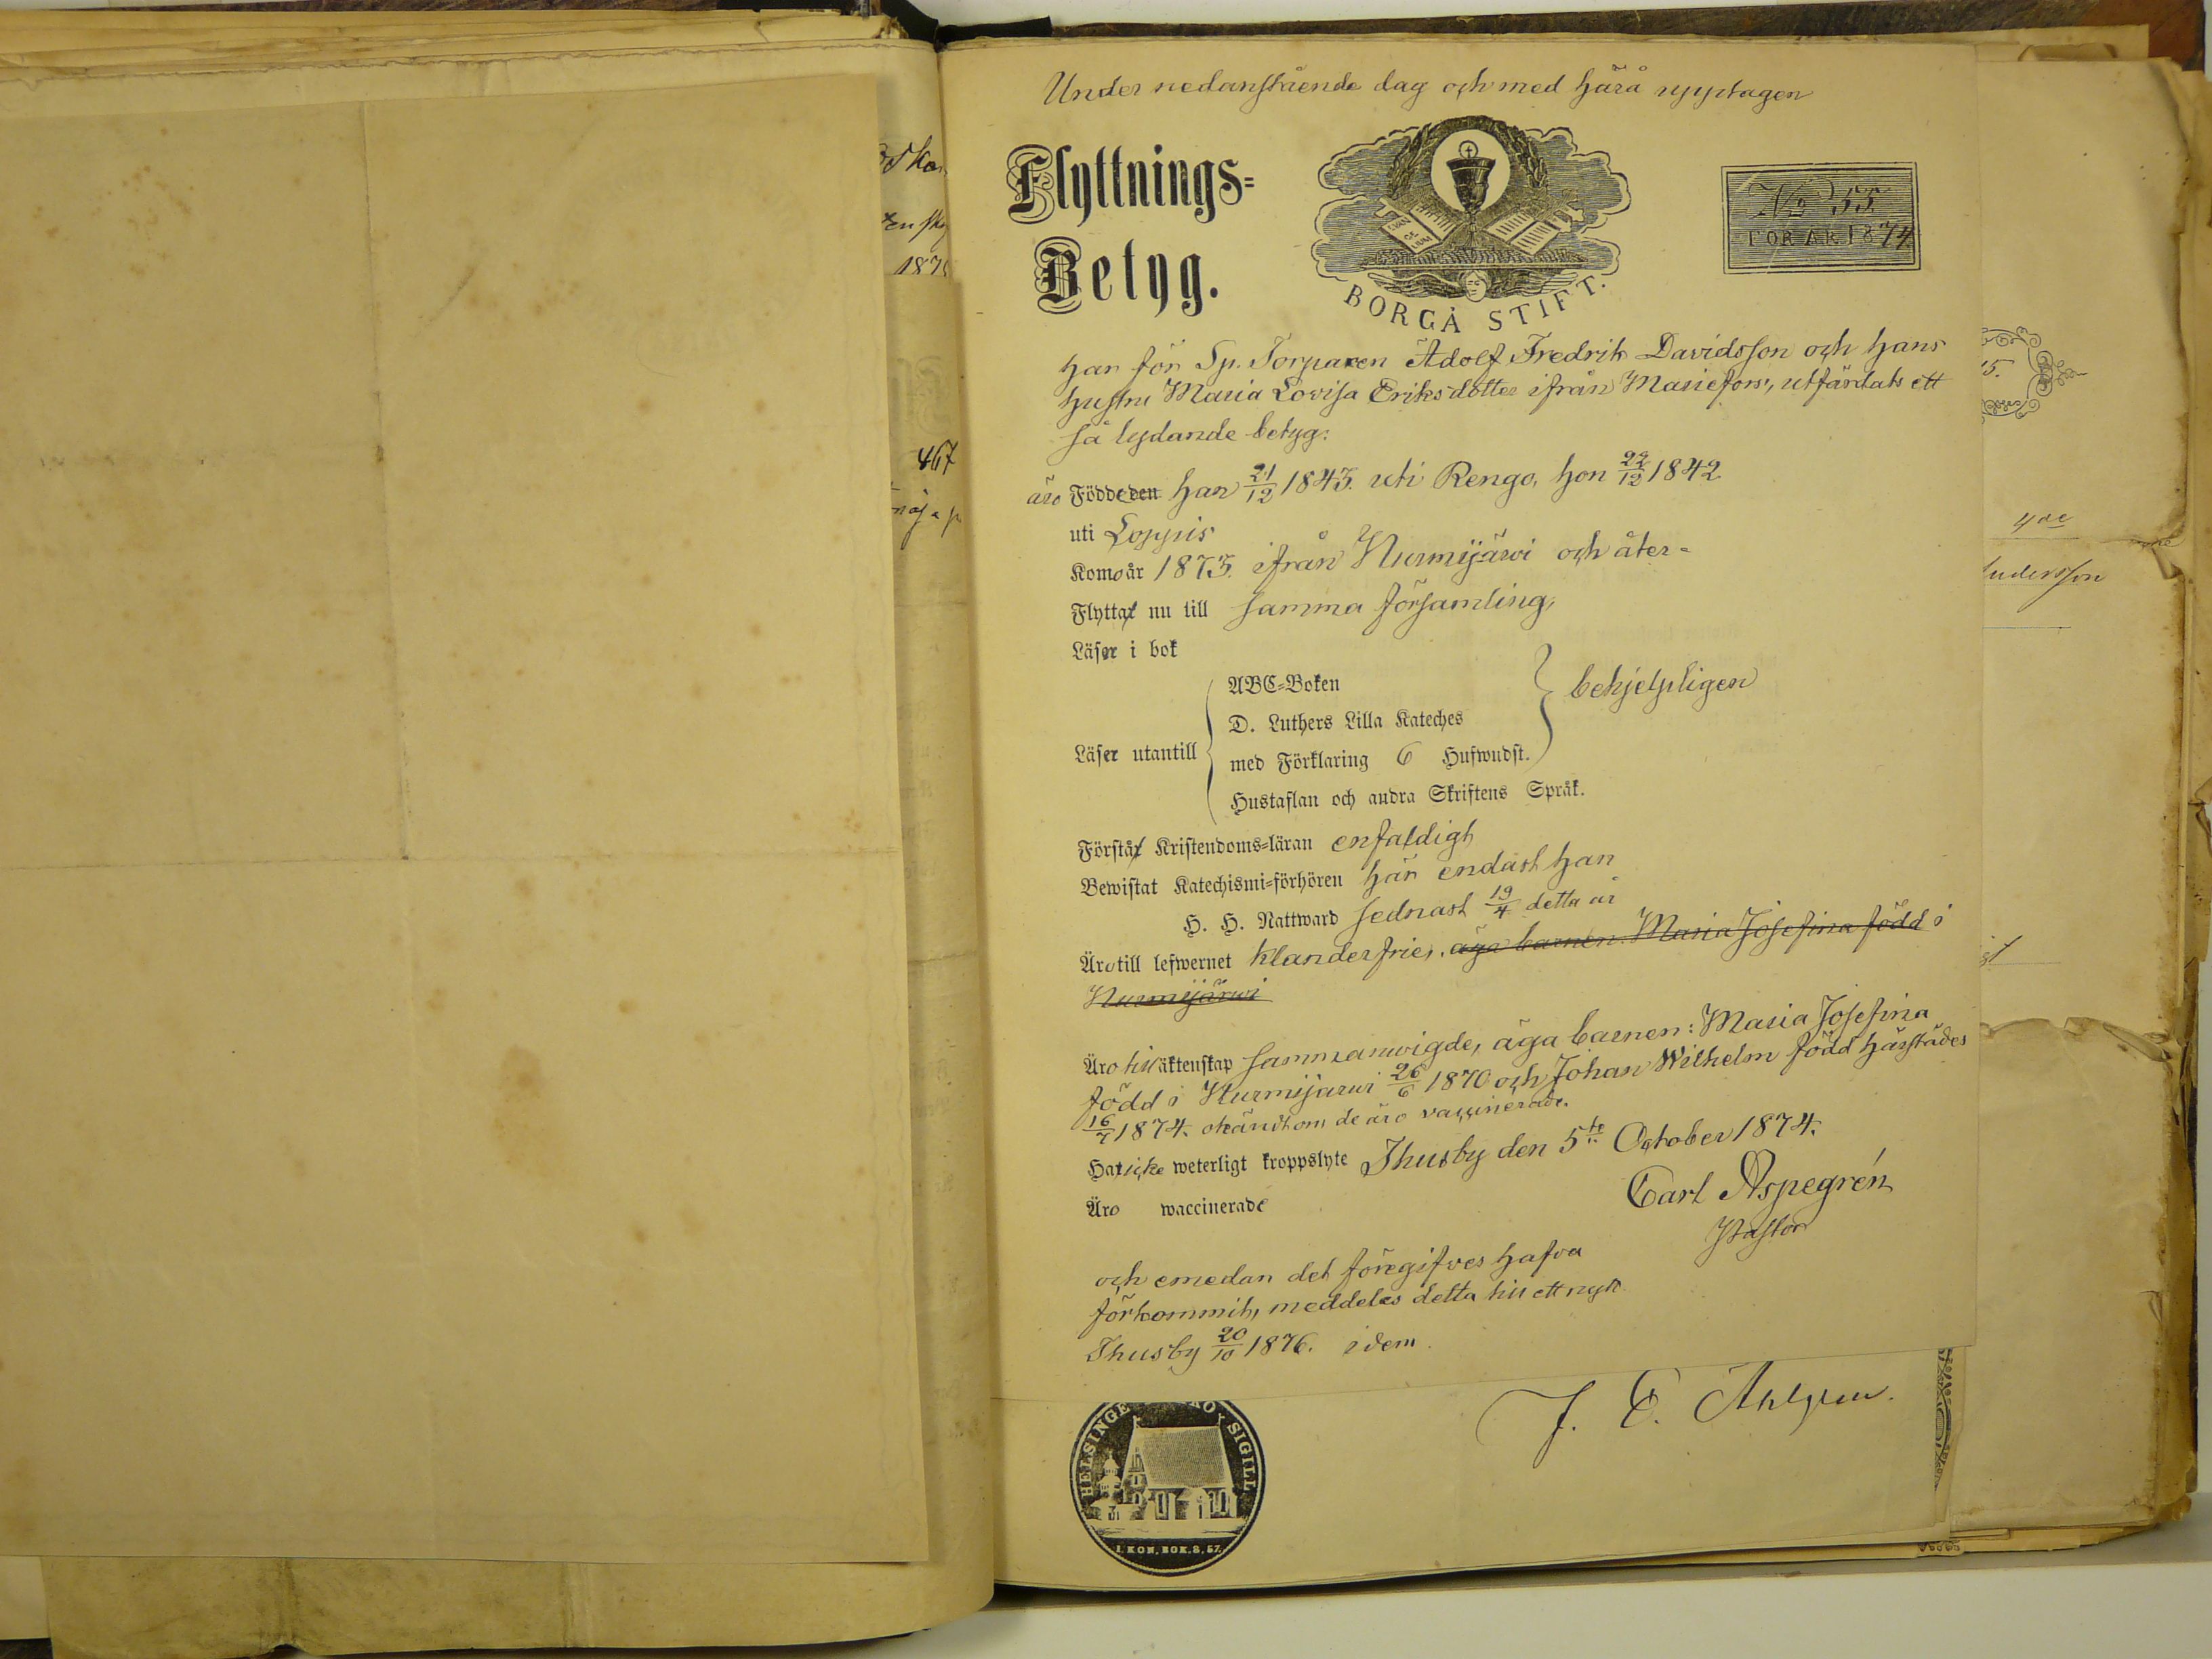 Under nedanstående dag och med härå upptagen
Flyttnings=
Betyg.
EVAN
GE
LIUM
BORGÅ STIFT.
No 55
FÖR ÅR 1874.
har för Sp. Torparen Adolf Fredrik Davidsson och hans
hustru Maria Lovisa Eriksdotter ifrån Mariefors, utfärdats ett
så lydande betyg:
äro Födde den han 21/12 1843. uti Rengo, hon 22/12 1842
uti Loppis
Komo år 1873. ifrån Nurmijärwi och åter=
Flyttat nu till samma församling,
Läser i bok
ABC=Boken
D. Luthers Lilla Kateches
behjelpligen
Läser utantill
med Förklaring 6 Hufwudst.
Hustaflan och andra Skriftens Språk.
Förstår Kristendoms=läran enfaldigt
Bewistat Katechismi=förhören här endast han
H. H. Nattward sednast 19/4 detta år
Äro till lefwernet klanderfrie, äga barnen: Maria Josefina född i
Nurmijärwi
Äro till äktenskap sammanwigde, äga barnen: Maria Josefina
född i Nurmijärwi 26/6 1870 och Johan Wilhelm född härstädes
16/7 1874. okändt om de äro vaccinerade.
Har icke weterligt kroppslyte Thusby den 5te October 1874.
Äro waccinerade
Carl Aspegrén
Pastor
och emedan det föregifves hafva
förkommit, meddelas detta till ett nytt.
Thusby 20/10 1876. idem.
J. E. Ahlgren.
HELSINGE
SIGILL
1. KON. BOK. 8. 57.
467
1875
15.